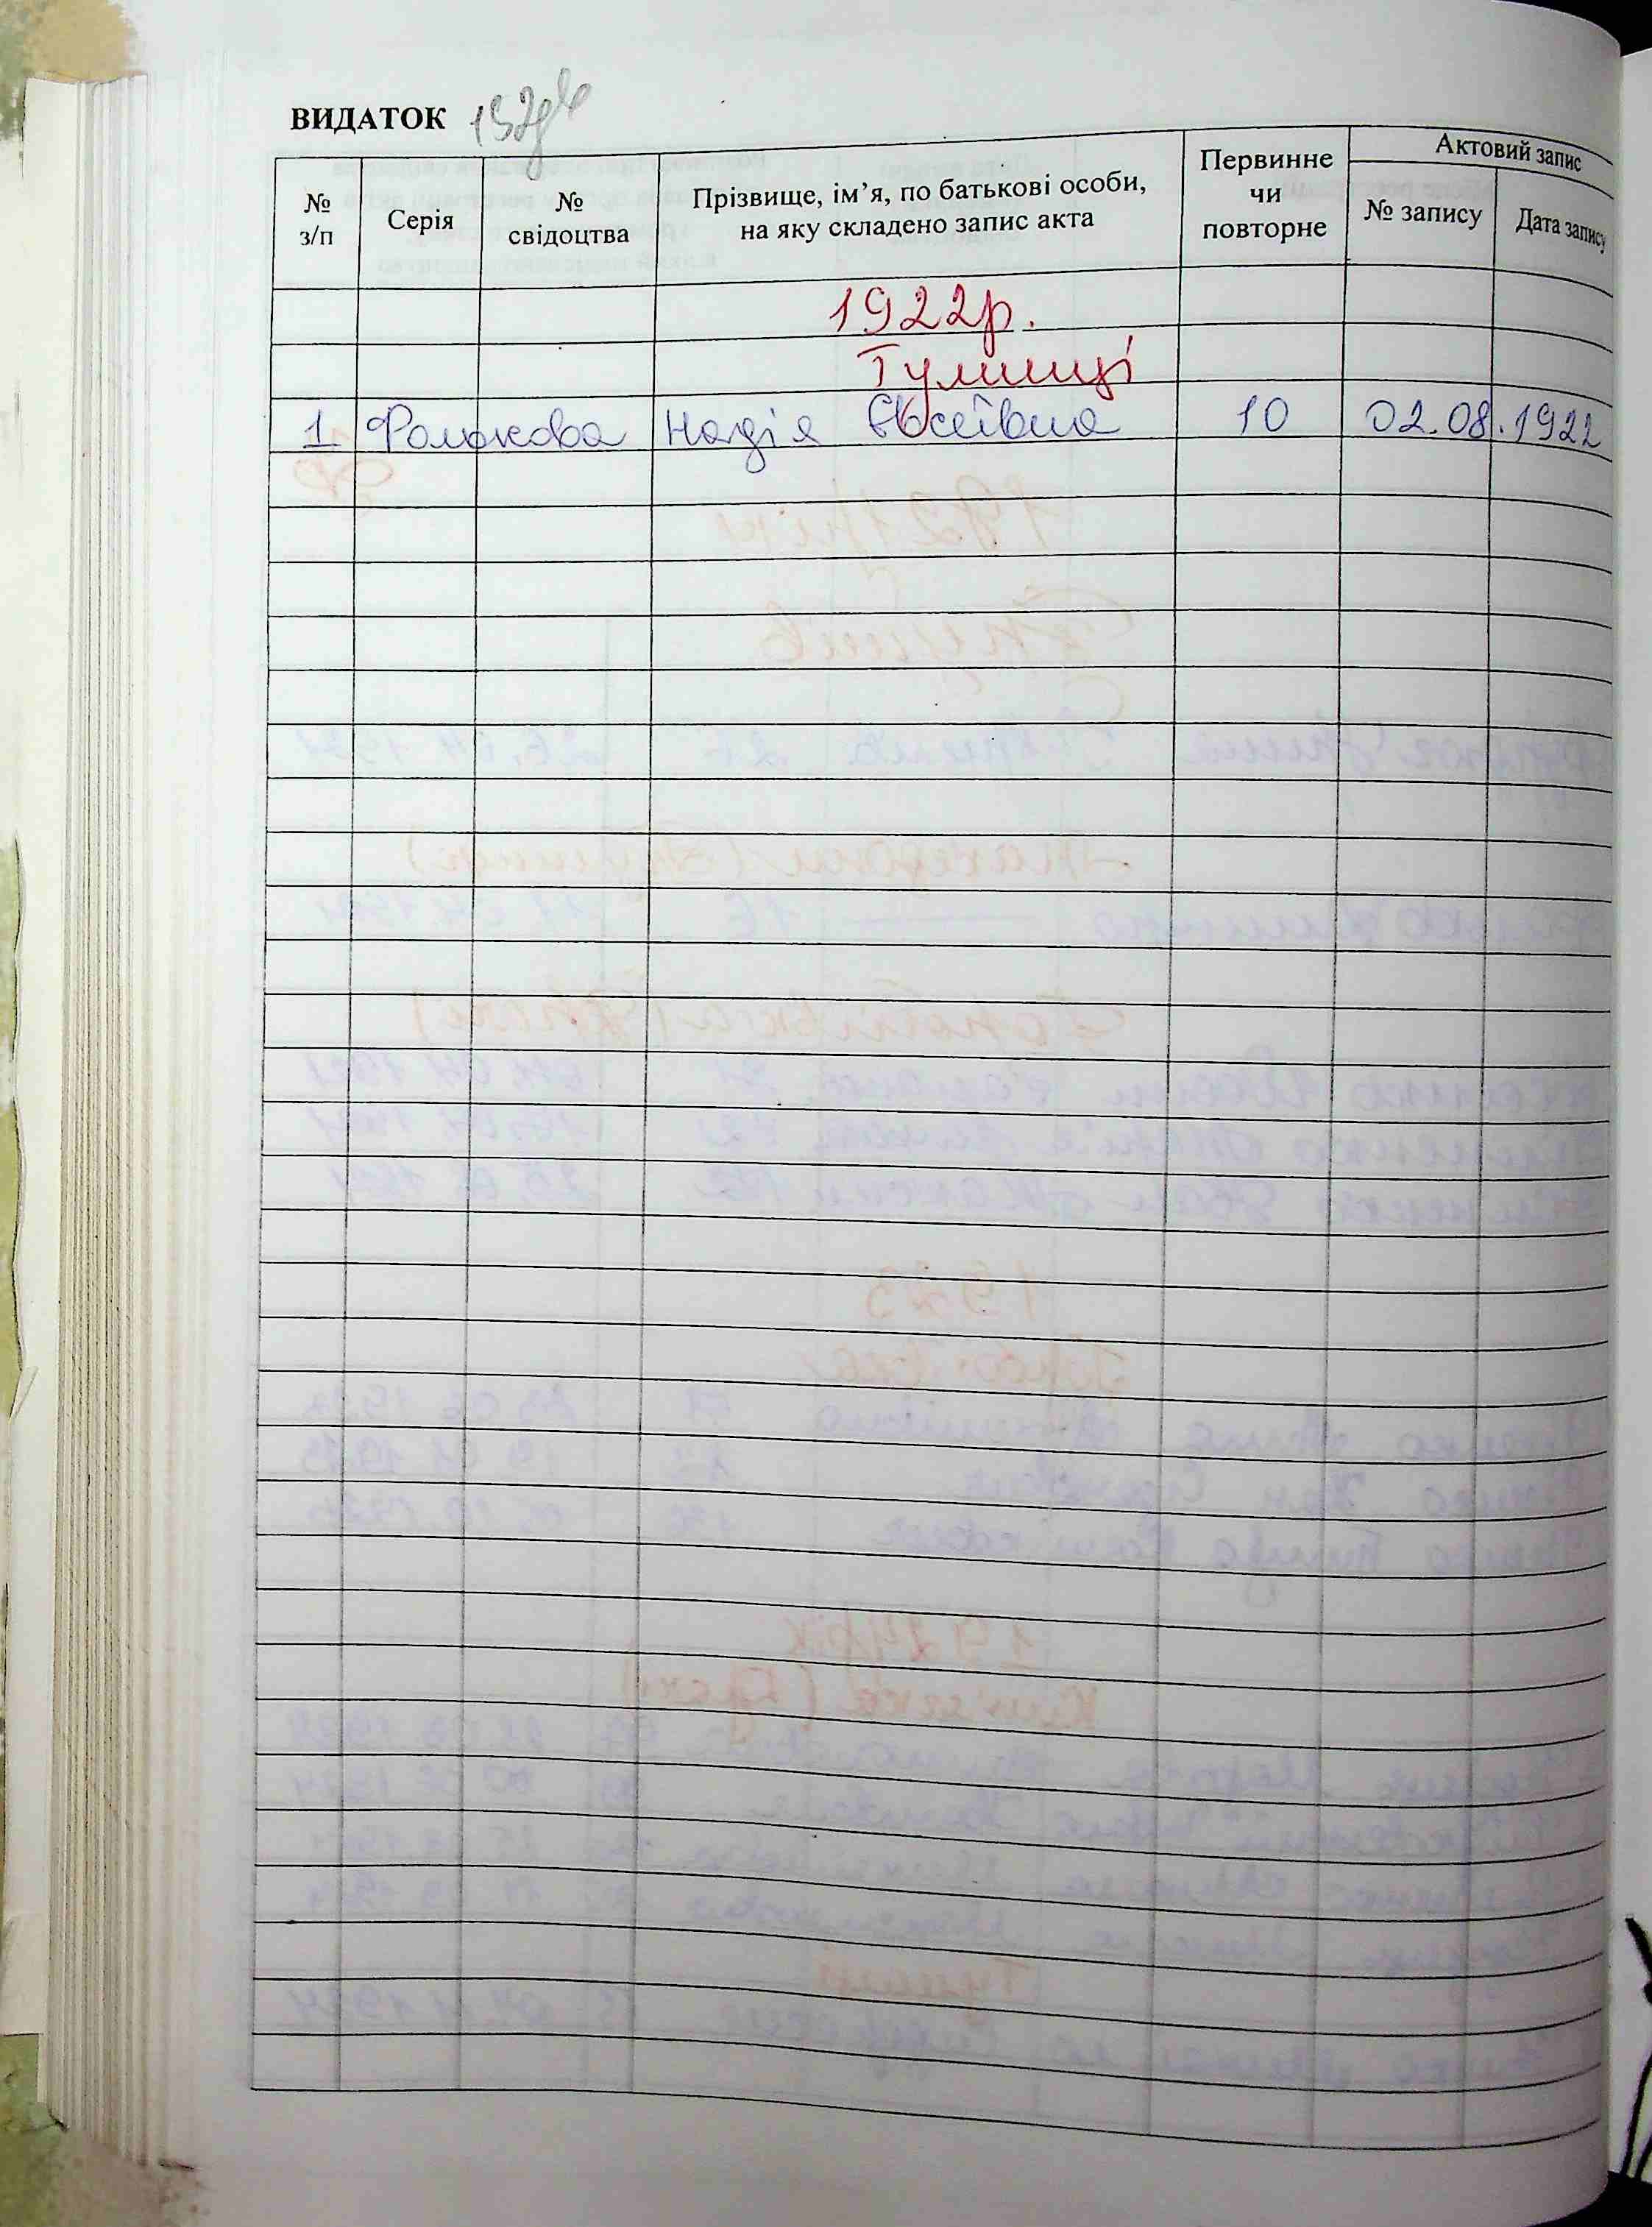 ВИДАТОК
№ з/п
Серія
№ свідоцтва
Прізвище, ім’я, по батькові особи,
на яку складено запис акта
Первинне
чи
повторне
Актовий запис
№ запису
Дата запису
1922р.
Тулинці
1 Фолокова Надія Євсеївна 10 02.08.1922